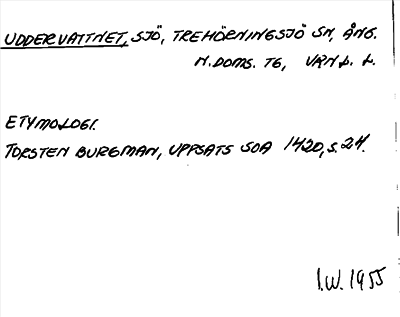 UDDERVATTNET, SJÖ, TREHÖRNINGSJÖ SN, ÅNG.
N. DOMS. TG, VRN L. L.
ETYMOLOGI.
TORSTEN BURGMAN, UPPSATS SOA 1420, S. 24.
I.W. 1955